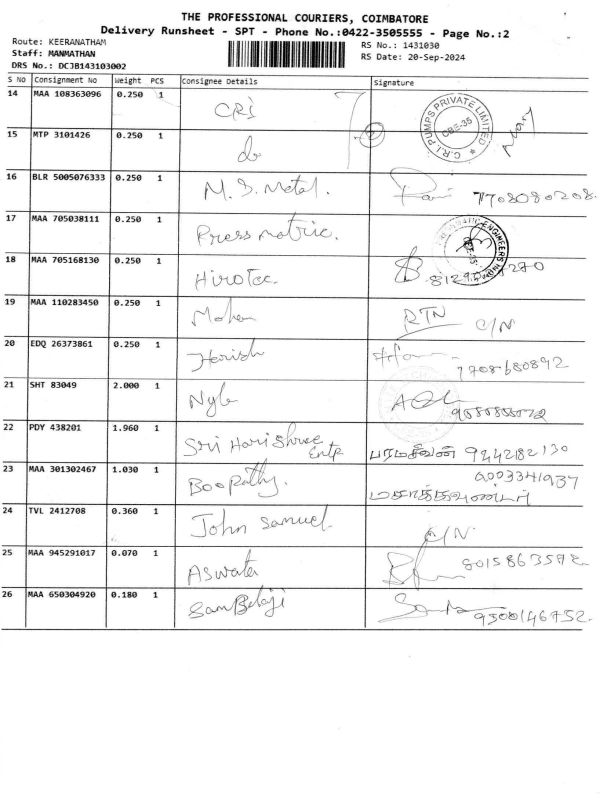 THE PROFESSIONAL COURIERS, COIMBATORE
Delivery Runsheet - SPT - Phone No.:0422-3505555 - Page No.:2
Route: KEERANATHAM
RS No.: 1431030
Staff: MANMATHAN
RS Date: 20-Sep-2024
DRS No.: DCJB143103002
S NO Consignment No Weight PCS Consignee Details Signature
14 MAA 108363096 0.250 1 CRI
C.R.I. PUMPS PRIVATE LIMITED
CBE-35
15 MTP 3101426 0.250 1 do
2
16 BLR 5005076333 0.250 1 M.S. Metal. 7708080208.
17 MAA 705038111 0.250 1 Pressmatric.
ENGINEERS
18 MAA 705168130 0.250 1 Hirotec
19 MAA 110283450 0.250 1 Mohan RTN C/N
20 EDQ 26373861 0.250 1 Harish 7708680892
21 SHT 83049 2.000 1
22 PDY 438201 1.960 1 Sri Harishree Entp பரமசிவன் 9442182130
23 MAA 301302467 1.030 1 Boopathy.
24 TVL 2412708 0.360 1 John Samuel C/N
25 MAA 945291017 0.070 1 8015863592
26 MAA 650304920 0.180 1 Sam Belaji 9500146752.